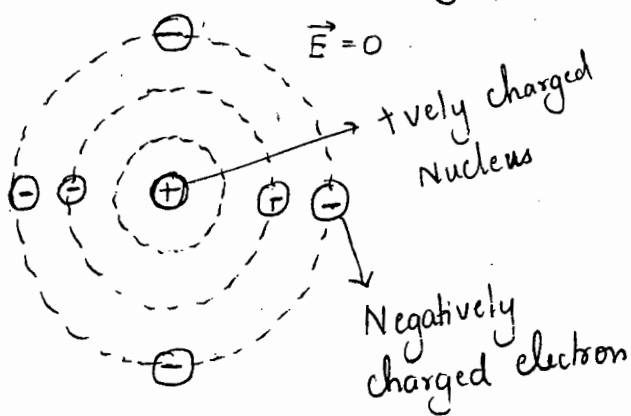 E⃗ = 0
+vely charged
Nucleus
+
-
-
-
-
-
-
Negatively
charged electron